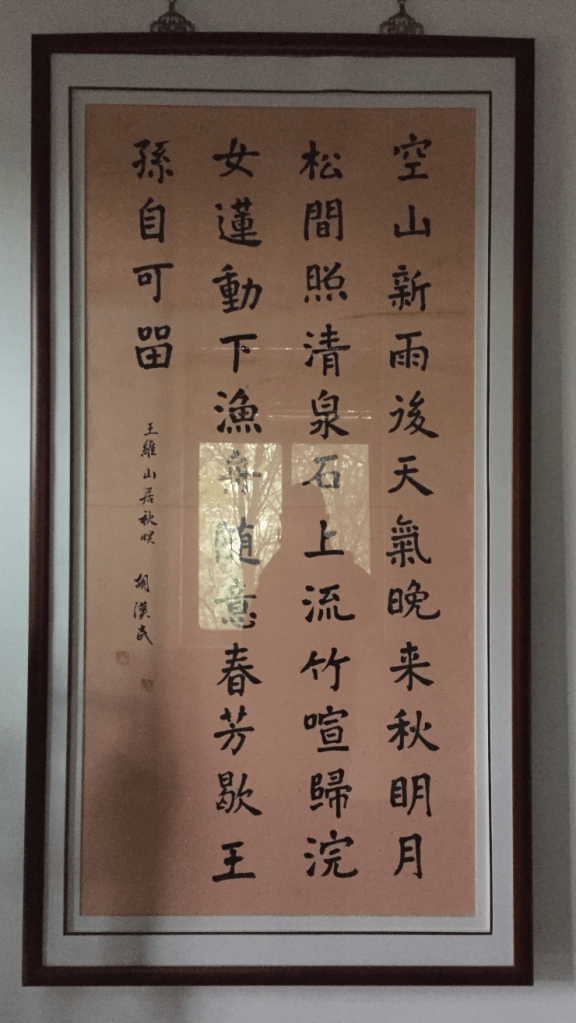 空山新雨後天氣晚来秋眀月
松間照清泉石上流竹喧歸浣
女蓮動下漁舟随意春芳歇王
孫自可㽞
王維山居秋暝 胡漢民